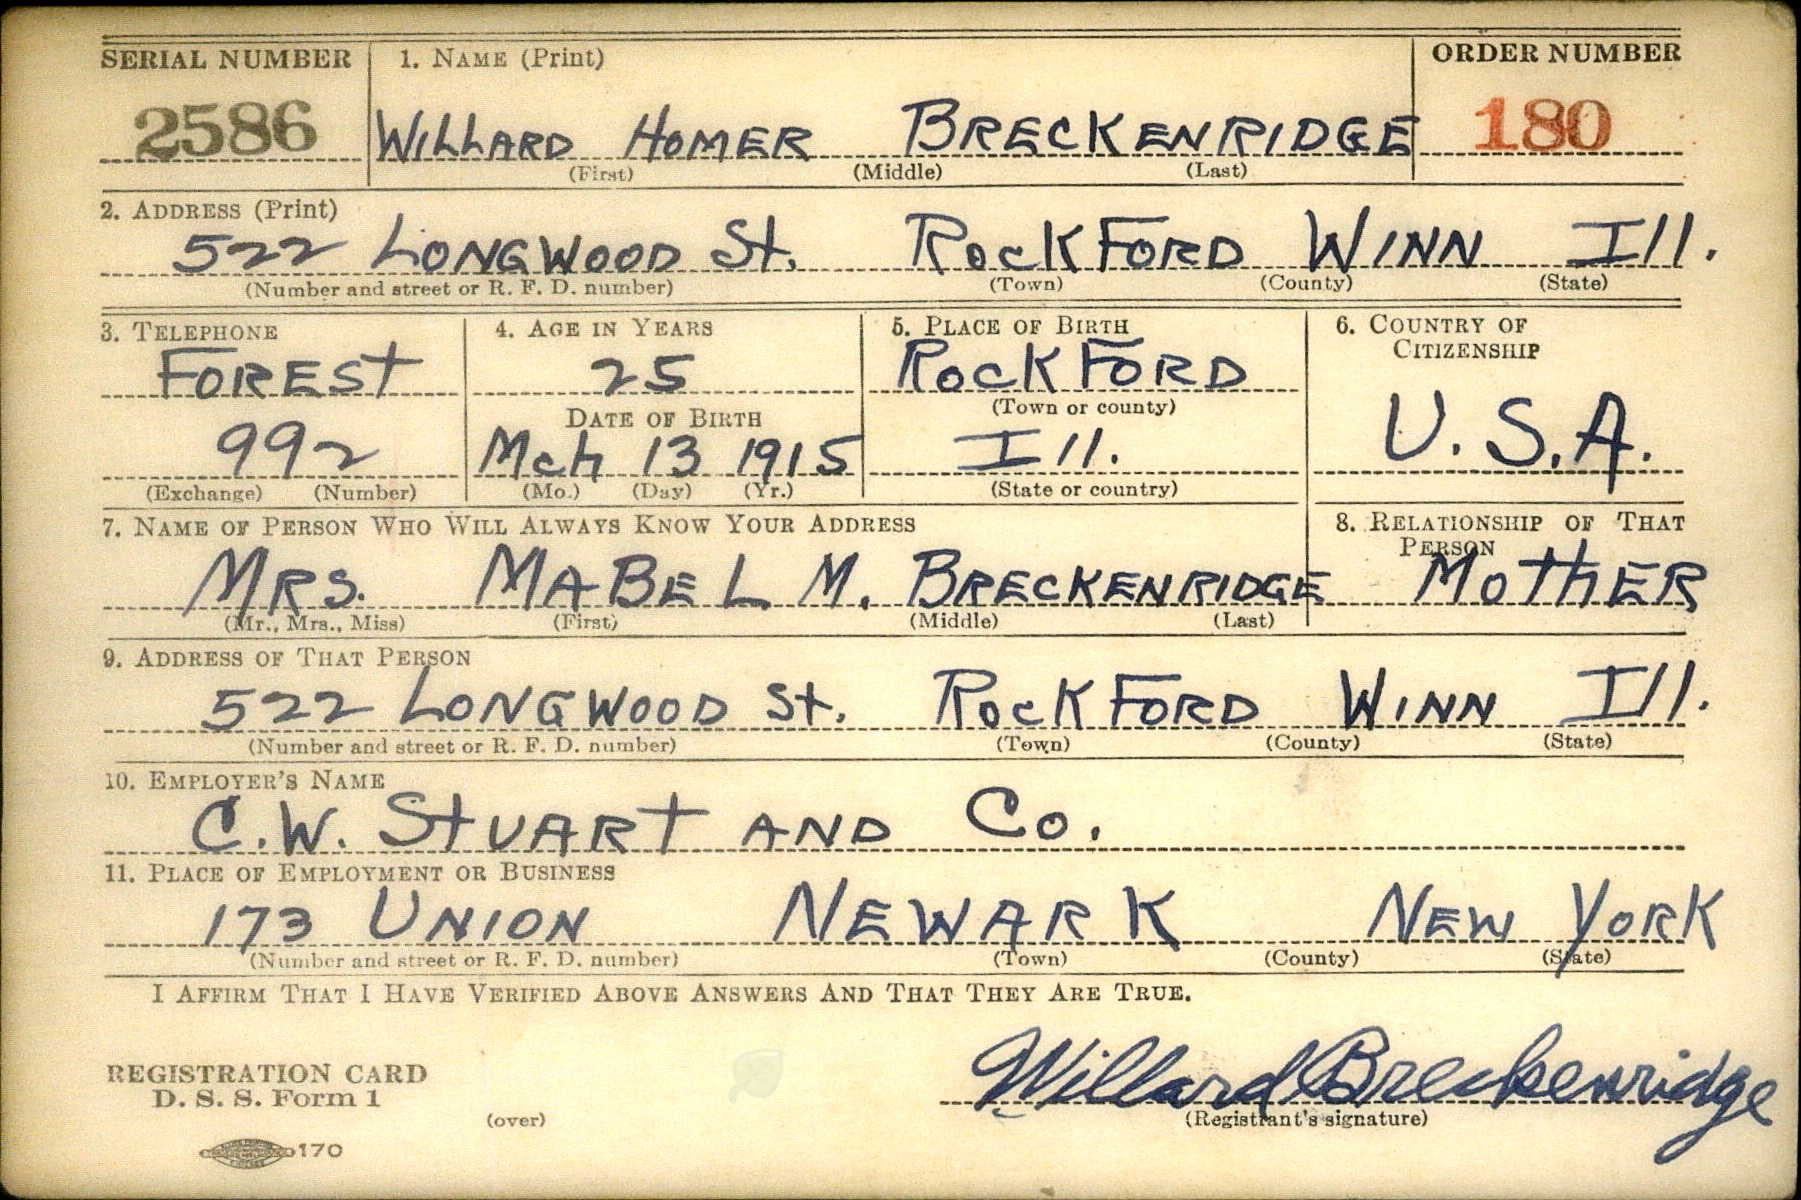 SERIAL NUMBER 1. NAME (Print) ORDER NUMBER
2586 WILLARD HOMER BRECKENRIDGE 180
(First) (Middle) (Last)
2. ADDRESS (Print)
522 LONGWOOD St. ROCKFORD WINN Ill.
(Number and street or R. F. D. number) (Town) (County) (State)
3. TELEPHONE 4. AGE IN YEARS 5. PLACE OF BIRTH 6. COUNTRY OF CITIZENSHIP
FOREST 25 ROCKFORD
DATE OF BIRTH (Town or county)
992 Mch 13 1915 Ill. U.S.A.
(Exchange) (Number) (Mo.) (Day) (Yr.) (State or country)
7. NAME OF PERSON WHO WILL ALWAYS KNOW YOUR ADDRESS 8. RELATIONSHIP OF THAT PERSON
MRS. MABEL M. BRECKENRIDGE MOTHER
(Mr., Mrs., Miss) (First) (Middle) (Last)
9. ADDRESS OF THAT PERSON
522 LONGWOOD St. ROCKFORD WINN Ill.
(Number and street or R. F. D. number) (Town) (County) (State)
10. EMPLOYER'S NAME
C.W. STUART AND Co.
11. PLACE OF EMPLOYMENT OR BUSINESS
173 UNION NEWARK NEW YORK
(Number and street or R. F. D. number) (Town) (County) (State)
I AFFIRM THAT I HAVE VERIFIED ABOVE ANSWERS AND THAT THEY ARE TRUE.
Willard Breckenridge
REGISTRATION CARD
D. S. S. Form 1
(over) (Registrant's signature)
170